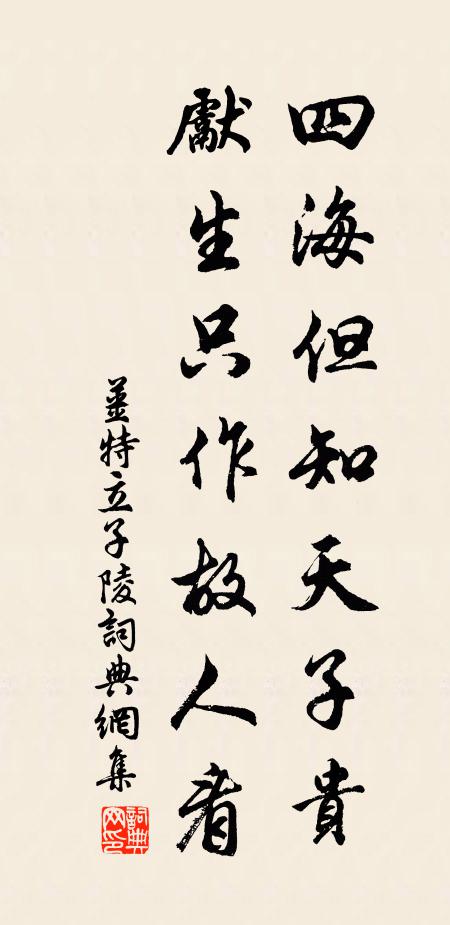 四海但知天子貴
獻生只作故人看
薑特立子陵詞典網集
詞典
网印